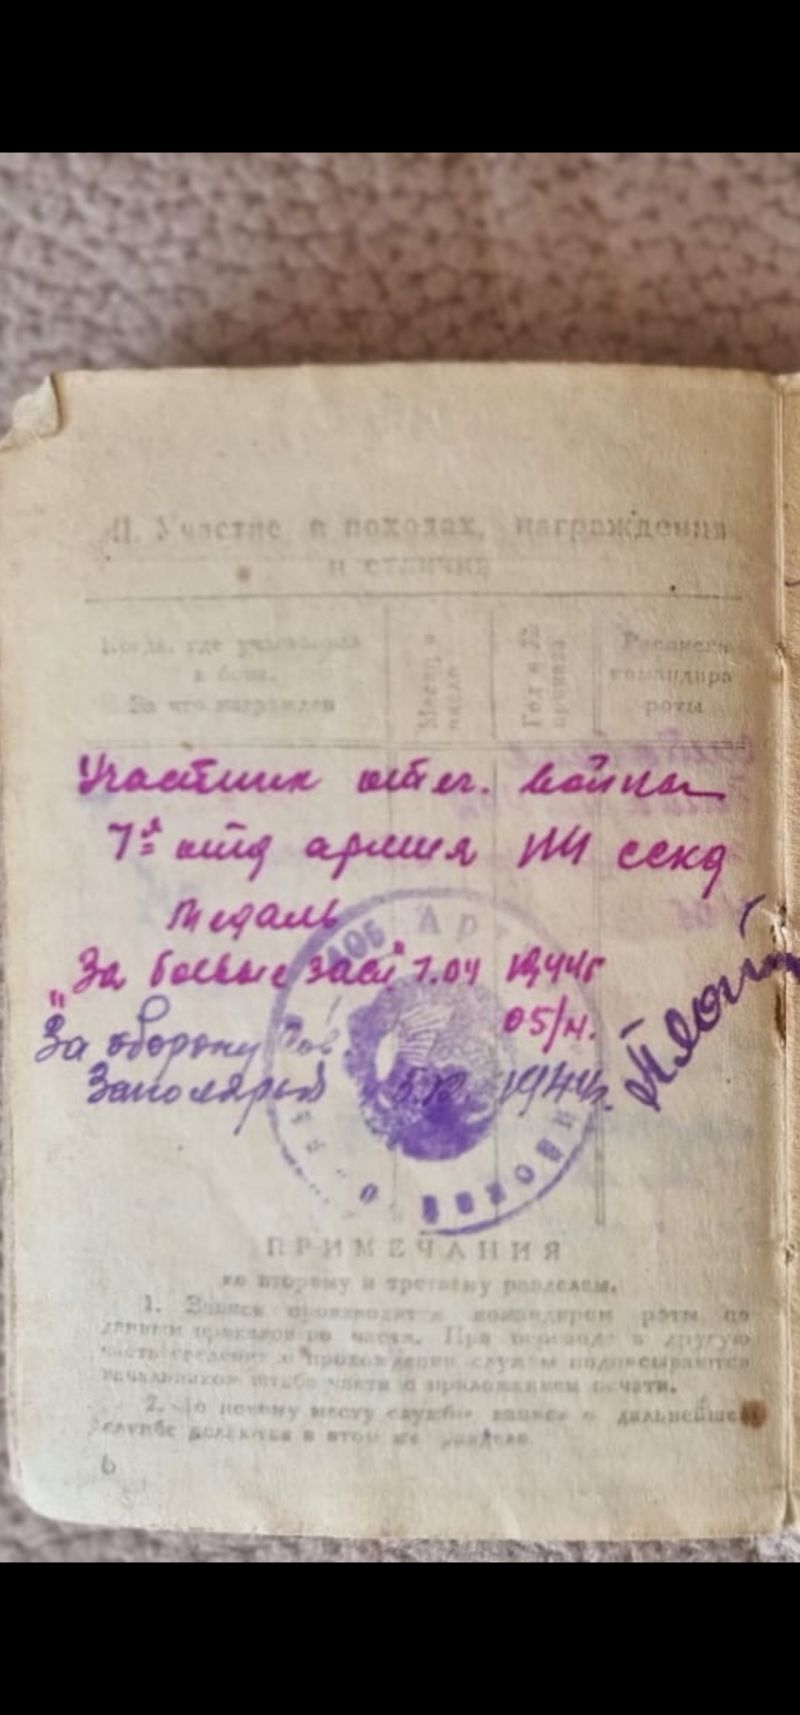 II. Участие в походах, награждения
и отличия
Когда, где участвовал
в боях.
За что награжден
Месяц и
число
Год и №
приказа
Расписка
командира
роты
Участник отеч. войны
7-я отд армия ИИ
медаль
"За боевые засл" 7.04 1944г
05/н.
За оборону Сов.
Заполярья 5.12. 1944г.
АРТ
ПРИМЕЧАНИЯ
ко второму и третьему разделам.
1. Записи производятся командиром роты по
данным приказов по части. При переводе в другую
часть сведения о прохождении службы подписываются
начальником штаба части с приложением печати.
2. По новому месту службы записи о дальнейшей
службе делаются в этом же разделе
6